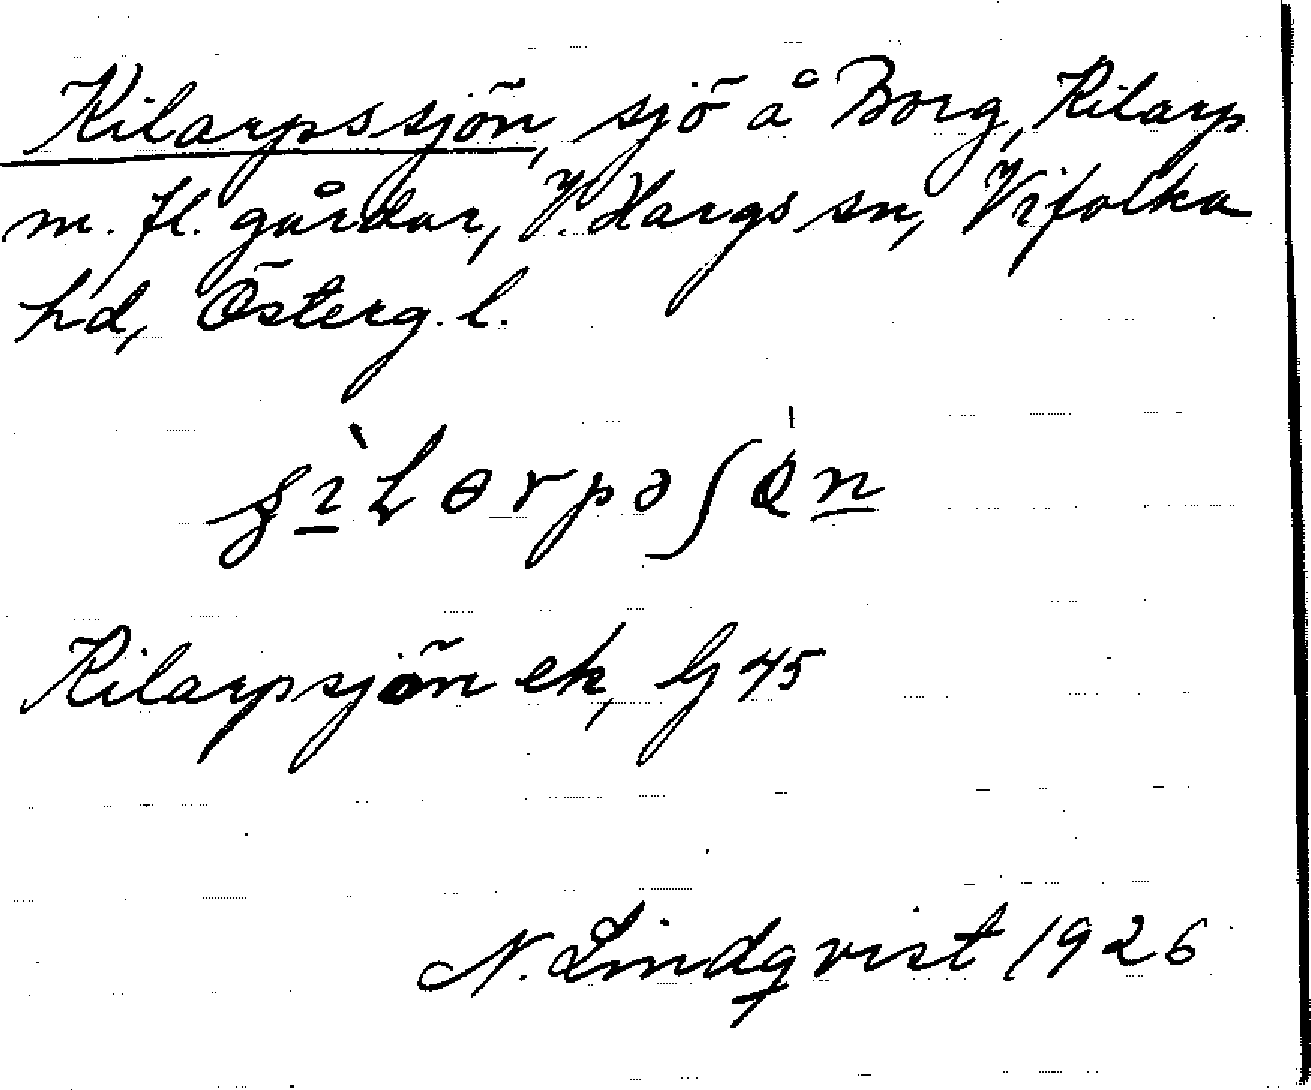 Kilarpssjön, sjö å Borg, Kilarp
m. fl. gårdar, V. Hargs sn, Vifolka
hd, Österg. l.
Kilarpsjön ek, G 45
N. Lindqvist 1926